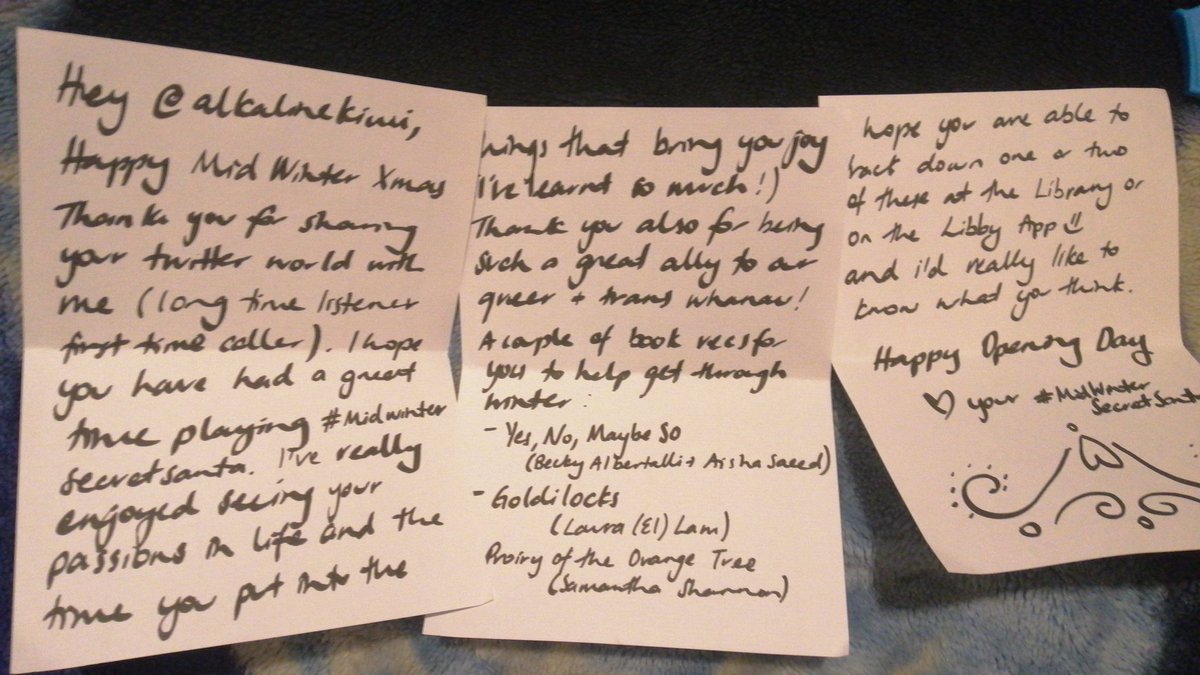 Hey @alkalinekiwi,
Happy Mid Winter Xmas
Thank you for sharing
your twitter world with
me (long time listener
first time caller). I hope
you have had a great
time playing #Midwinter
secretsanta. I've really
enjoyed seeing your
passions in life and the
time you put into the
hings that bring you joy
I've learnt so much!)
Thank you also for being
such a great ally to our
queer + trans whanau!
A couple of book recs for
you to help get through
winter:
- Yes, No, Maybe So
(Becky Albertalli + Aisha Saeed)
- Goldilocks
(Laura (El) Lam)
Proiry of the Orange Tree
(Samantha Shannon)
hope you are able to
track down one or two
of these at the Library or
on the Libby App
and i'd really like to
know what you think.
Happy Opening Day
your #MidWinter
SecretSanta